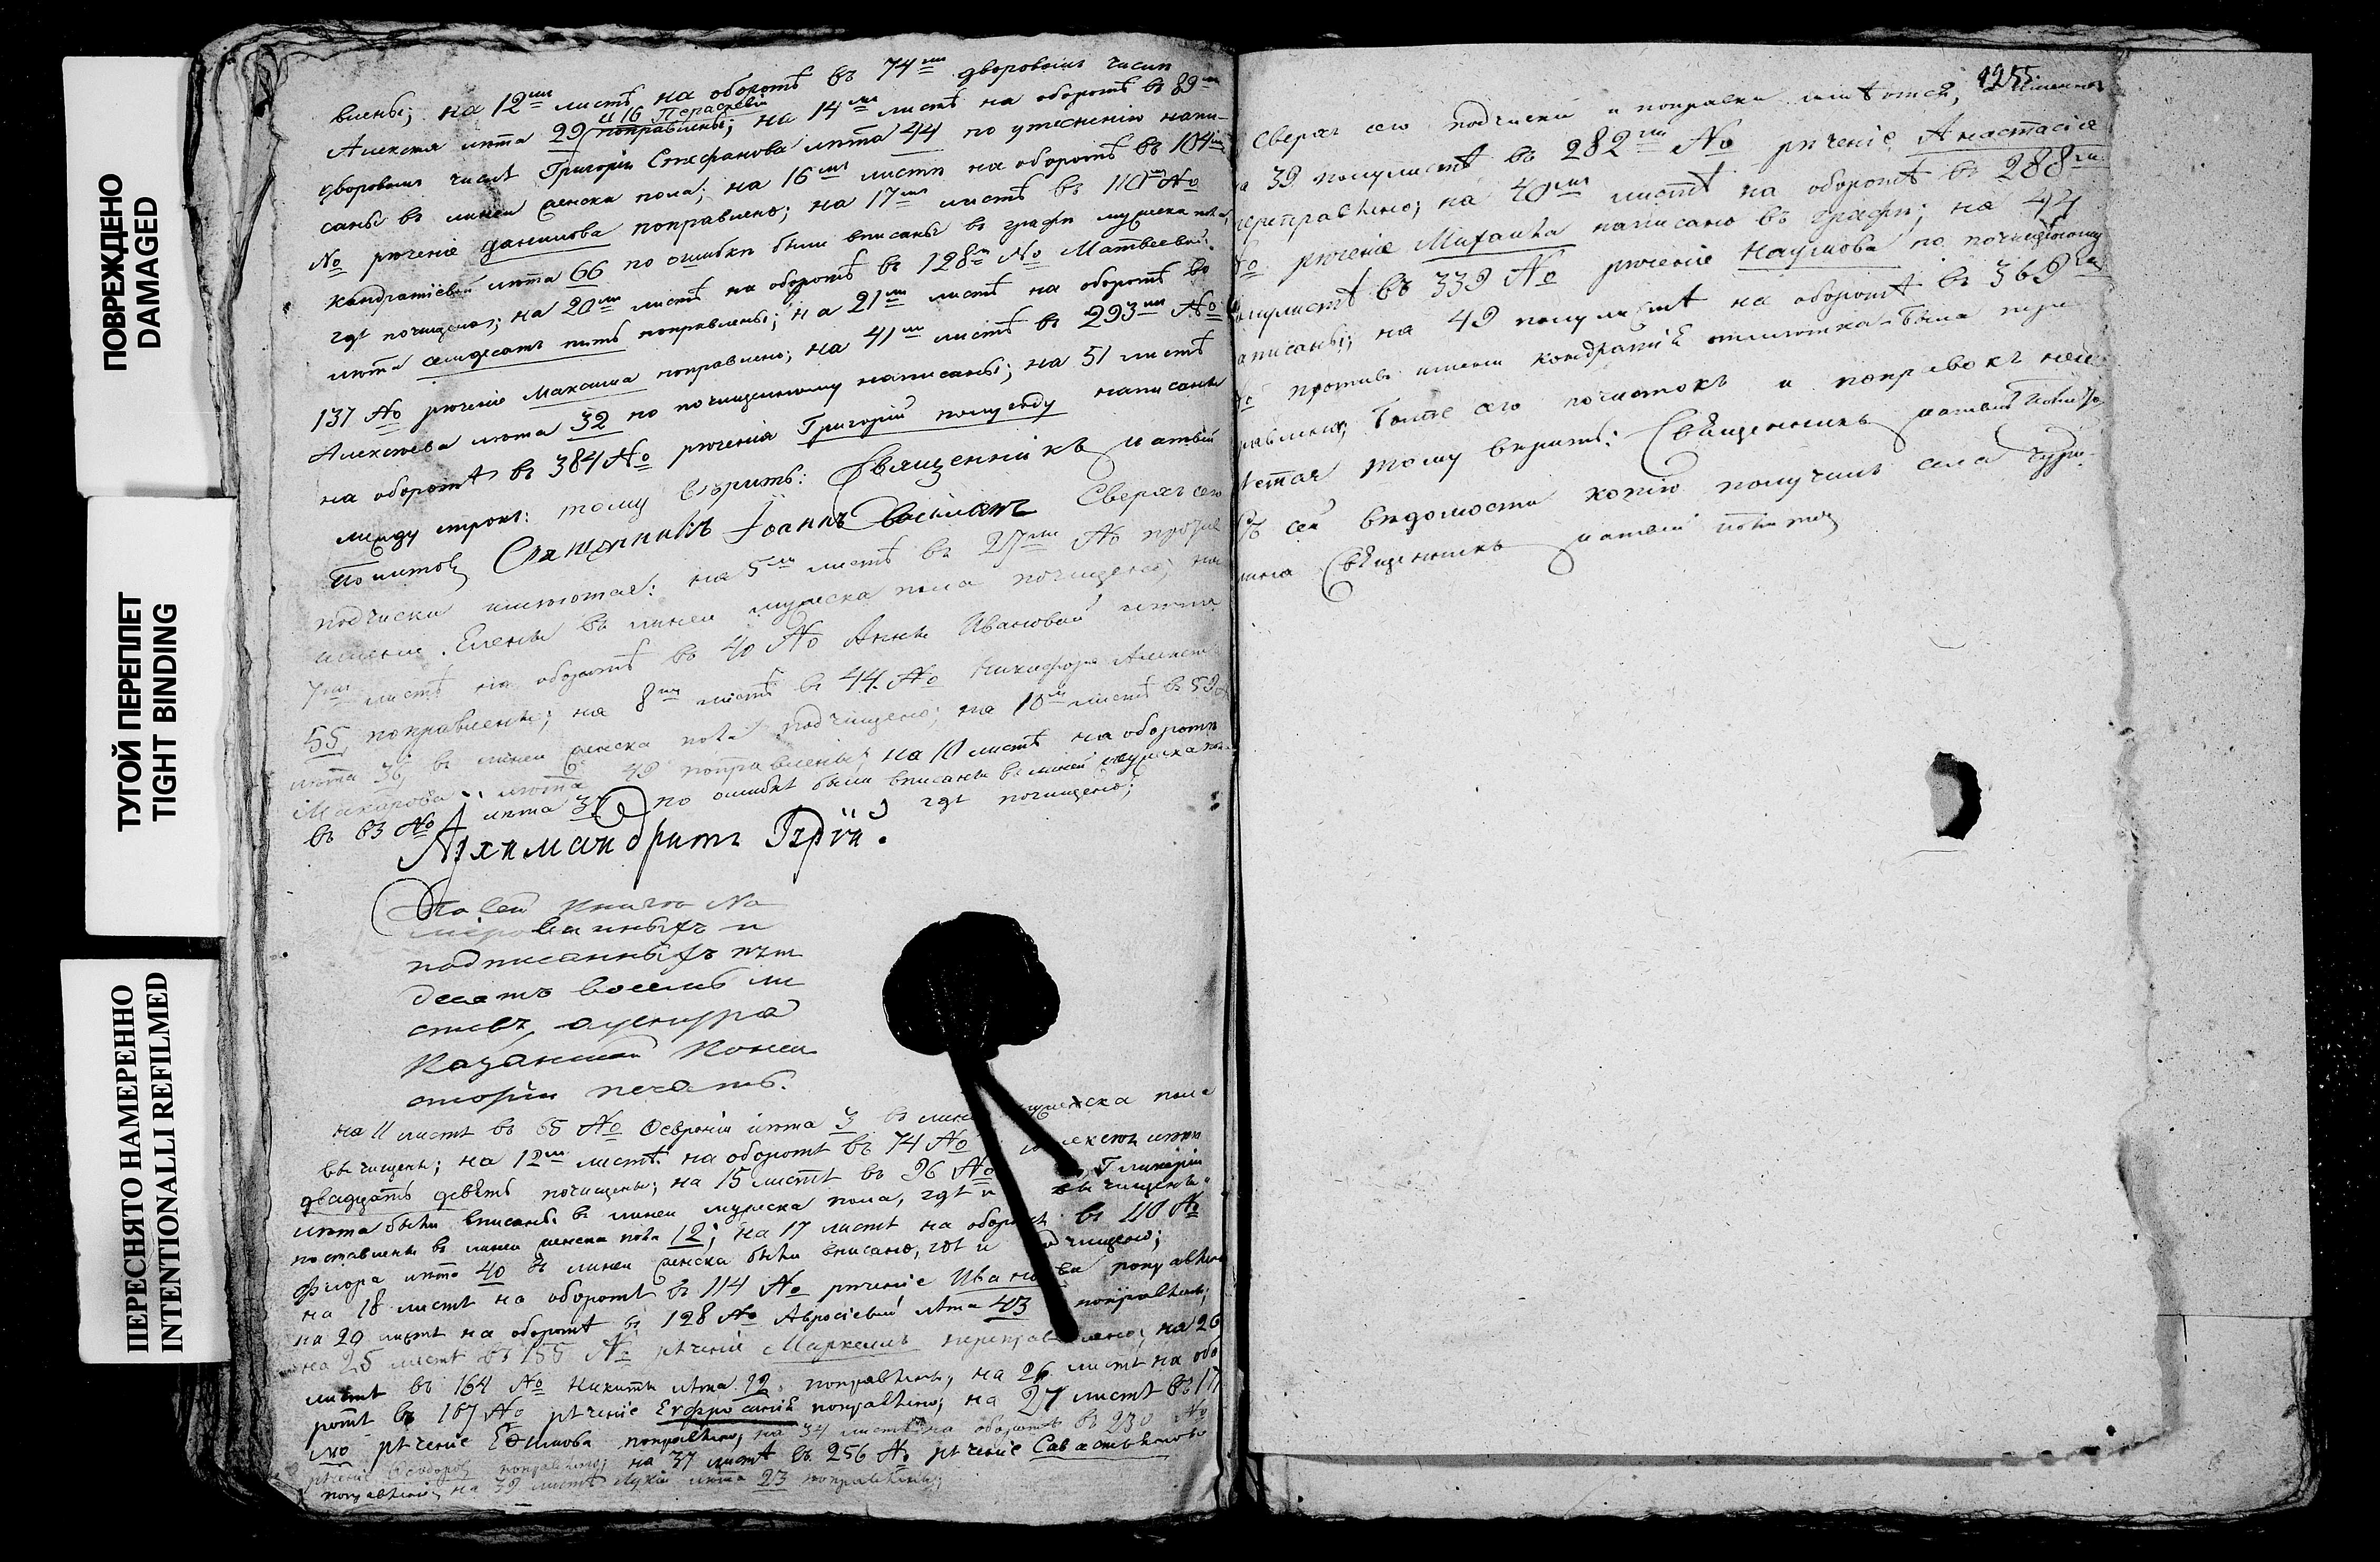 ПОВРЕЖДЕНО
DAMAGED
ТУГОЙ ПЕРЕПЛЕТ
TIGHT BINDING
ПЕРЕСНЯТО НАМЕРЕННО
INTENTIONALLI REFILMED
влены; на 12мъ листѣ на оборотѣ въ 74мъ дворовыхъ числѣ
и 16
Алексѣя лѣта 29 поправлены; на 14мъ листѣ на оборотѣ въ 89мъ
дворовыхъ числѣ Григорія Стефанова лѣта 44 по утесненію напи-
саны въ линеи женска пола; на 16мъ листѣ на оборотѣ въ 104мъ
№ рѣченіе Данилова поправлено; на 17мъ листѣ въ 110мъ №
Кондратіевой лѣта 66 по ошибки были вписаны въ графѣ мужеска пола,
гдѣ почищено; на 20мъ листѣ на оборотѣ въ 128м № Матвеевой
лѣта семдесятъ пять поправлены; на 21мъ листѣ на оборотѣ въ
137 № рѣченіе Максима поправлено; на 41мъ листѣ въ 293мъ №
Алексѣева лѣта 32 по почищенному написаны; на 51 листѣ
на оборотѣ въ 384 № рѣченія Григорій полугоду написаны
между строкъ: тому вѣрить: Священникъ матвѣй
Политовъ Священникъ Іоаннъ Васильевъ Сверхъ сего
подчиски имѣются: на 5мъ листѣ въ 27мъ № противъ
имени Елены въ линеи мужеска пола почищено; на
7мъ листѣ на оборотѣ въ 40 № Анны Ивановой лѣта
55 поправлены; на 8мъ листѣ въ 44 № Никифора Алексѣ
лѣта 36 въ линеи женска пола подчищено; на 10мъ листѣ въ 59
Макарова лѣта 49 поправлены; на 10 листѣ на оборотѣ
въ 63 № лѣта 37 по ошибкѣ были вписаны въ линеи мужеска пол
гдѣ почищено;
Архимандритъ
По сей книгѣ но
мерованныхъ и
подписанныхъ пят
десятъ восемь ли
стовъ,
Казанской Конси
сторіи печать.
на 11 листѣ въ 65 № Февроніи лѣта 3 въ линеи мужеска пола
вычищены; на 12мъ листѣ на оборотѣ въ 74 № лѣта
двадцать девять почищены; на 15 листѣ въ 96 № Гликеріи
лѣта были вписаны въ линеи мужеска пола, гдѣ и вычищены
поставлены въ линеи женска пола 12; на 17 листѣ на оборотѣ въ 110 №
Флора лѣта 40 въ линеи женска были вписано, гдѣ и подчищено;
на 18 листѣ на оборотѣ въ 114 № рѣченіе Иванова поправлено
на 20 листѣ на оборотѣ въ 128 № лѣта 43 поправлены;
на 25 листѣ въ 155 № рѣченіе Маркелъ переправлено; на 26
листѣ въ 164 № Никиты лѣта 12 поправлены; на 26 листѣ на обо
ротѣ въ 167 № рѣченіе Евфросинія поправлено; на 27 листѣ въ 17
№ рѣченіе Ефимова поправлено; на 34 листѣ на оборотѣ въ 230 №
рѣченіе Ѳеодоровъ поправлено; на 37 листѣ въ 256 № рѣченіе Савастьянова
поправлено; на 39 листѣ лѣта 23 поправлены;
1255
Сверхъ сего подчиски и поправки имѣются, а именно
на 39 полулистѣ въ 282мъ № рѣченіе Анастасія
переправлено; на 40мъ листѣ на оборотѣ въ 288мъ
№ рѣченіе Михаила написано въ графѣ; на 44
полулистѣ въ 339 № рѣченіе Наумова по почищенному
написаны; на 49 полулистѣ на оборотѣ въ 369мъ
№ противъ имени Кондратій отмѣтка была пере
правлена; Болѣе сего почистокъ и поправокъ неи
мѣется тому вѣрить: Священникъ матвѣй Политовъ
Съ сей ведомости копію получилъ села
Священникъ матвѣй Политовъ